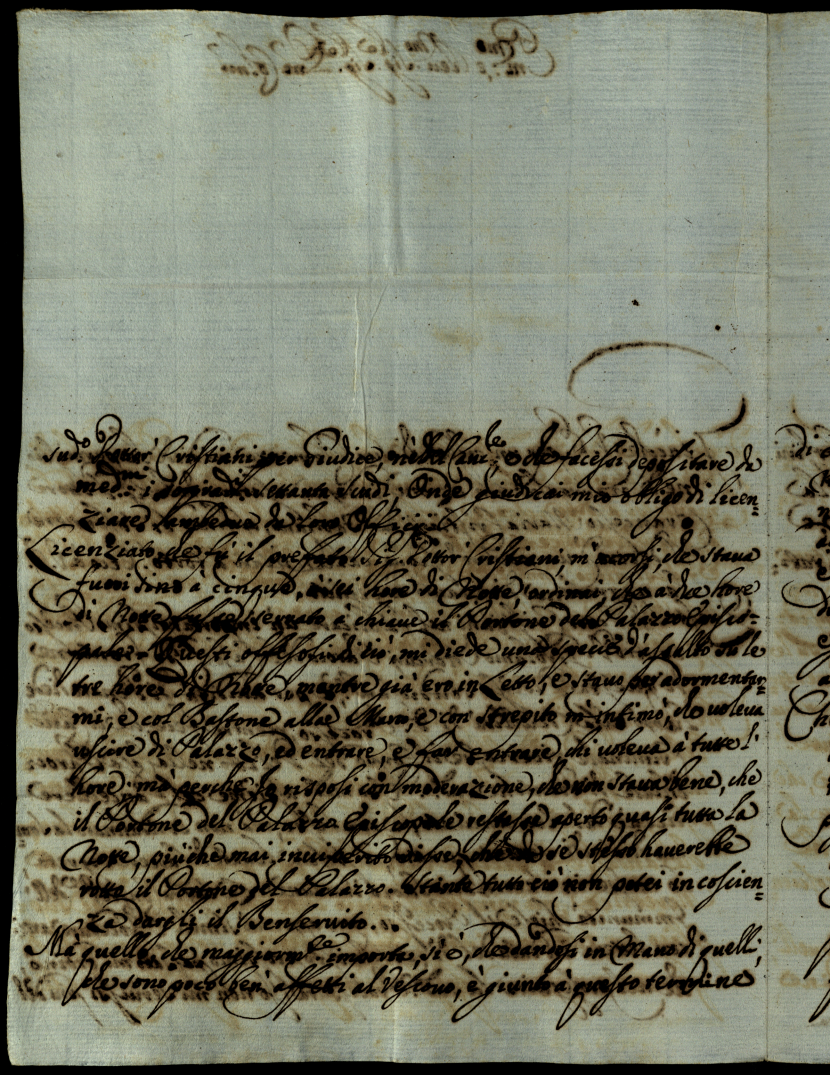 sud.º Dottor Cristiani per Giudice, nè del Canc.le, e che facessi depositare da
med.mi i settanta scudi. Onde giudicai mio obligo di licen=
ziare da loro Officij.
Licenziato, che fù il prefato Sig. Dottor Cristiani, m'accorsi, che staua
fuori sino à cinque, e sei hore di Notte, ordinai, che à due hore
di Notte fusse serrato à chiaue il Portone del Palazzo Episco=
pale. Questi offesosi di ciò, mi diede una specie d'assalto su le
tre hore di Notte, mentre già ero in Letto, e stauo per adormentar=
mi, e col Bastone alla Mano, e con strepito m'intimò, che uoleua
uscire di Palazzo, ed entrare, e far entrare, chi uoleua à tutte l'
hore, mà perche Io risposi con moderazione, che non staua bene, che
il Portone del Palazzo Episcopale restasse aperto quasi tutta la
Notte, più che mai disse, che da se stesso hauerebbe
rotto il Portone del Palazzo. Stante tutto ciò non potei in coscien=
za dargli il Benseruito.
Mà quello, che maggiorm.te importa, si è, che dandosi in Mano di quelli,
che sono poco ben affetti al Vescouo, è giunto à questo termine